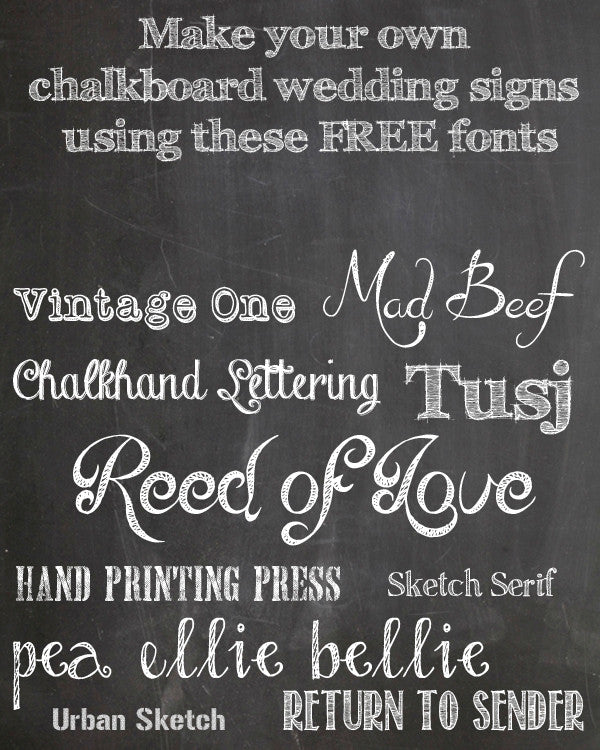 Make your own
chalkboard wedding signs
using these FREE fonts
Vintage One
Mad Beef
Chalkhand Lettering
Tusj
Reed of Love
HAND PRINTING PRESS
Sketch Serif
pea ellie bellie
Urban Sketch
RETURN TO SENDER